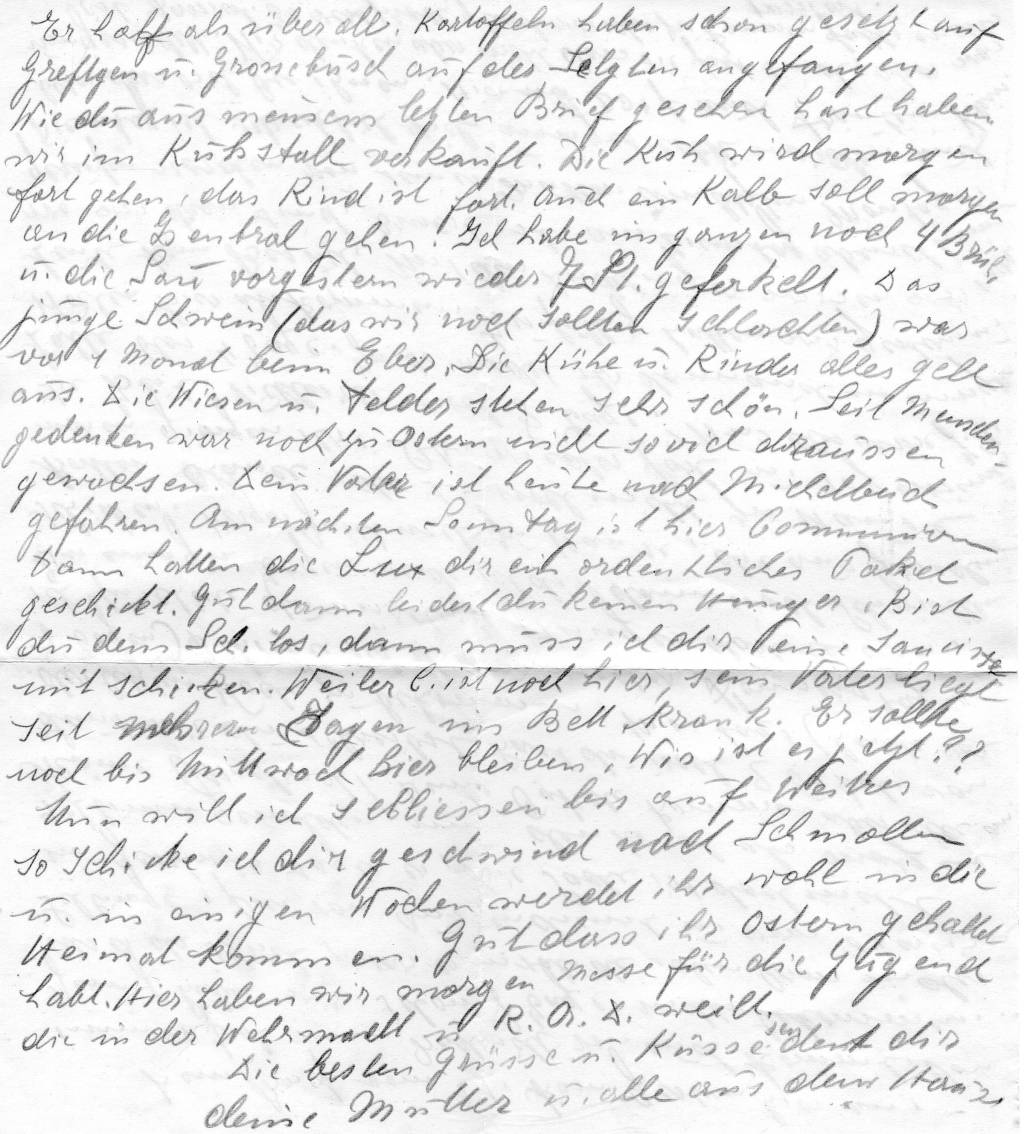 Er half als überall. Kartoffeln haben schon gesetzt auf
Greftgen u. Grossebusch auf des Selgten angefangen.
Wie du aus meinem letzten Brief gesehen hast haben
wir im Kuhstall verkauft. Die Kuh wird morgen
fort gehen, das Rind ist fort. Auch ein Kalb soll morgen
an die Zentral gehen. Ich habe im ganzen noch 4
u. die Sau vorgestern wieder 7 St. geferkelt. Das
junge Schwein (das wir noch sollten schlachten) war
vor 1 Monat beim Eber. Die Kühe u. Rinder alles geht
aus. Die Wiesen u. Felder stehen sehr schön. Seit Menschen-
gedenken war noch zu Ostern nicht soviel draussen
gewachsen. Dein Vater ist heute nach Michelbuch
gefahren. Am nächsten Sonntag ist hier Communion
Dann hatten die Lux dir ein ordentliches Paket
geschickt. Gut dann leidest du keinen Hunger. Bist
du dem Sch. los, dann muss ich dir eine
mit schicken. Weiler C. ist noch hier, sein Vater liegt
seit mehreren Tagen im Bett krank. Er sollte
noch bis Mittwoch hier bleiben. Wie ist es jetzt??
Nun will ich schliessen bis auf Weitres
so schicke ich dir geschwind nach Schmollen
u. in einigen Wochen werdet ihr wohl in die
Heimat kommen. Gut dass ihr Ostern gehalten
habt. Hier haben wir morgen Messe für die Jugend
die in der Wehrmacht u. R. A. D. weilt.
Die besten Grüsse u. Küsse sendet dir
deine Mutter u. alle aus dem Haus.